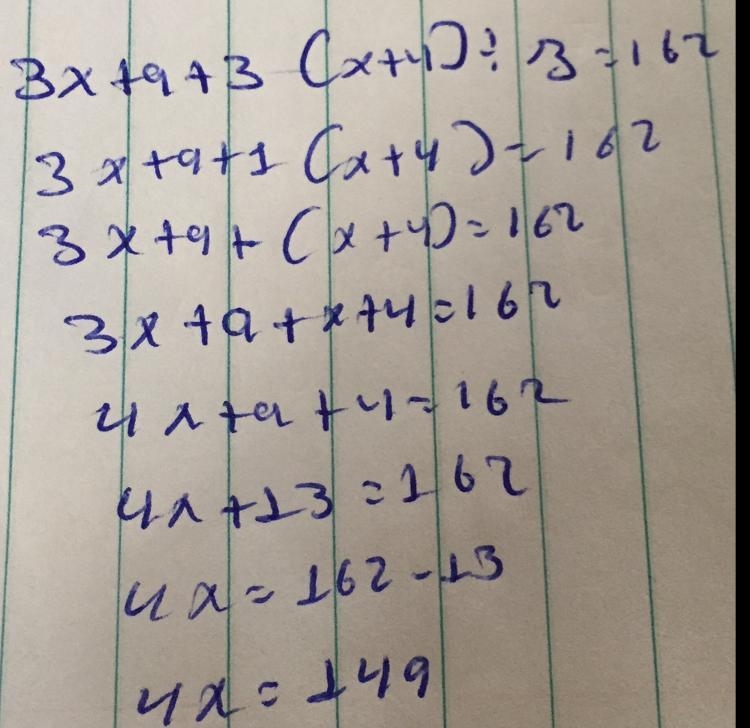 3x+9+3 (x+4)÷3=162
3x+9+1 (x+4)=162
3x+9+(x+4)=162
3x+9+x+4=162
4x+9+4=162
4x+13=162
4x=162-13
4x=149